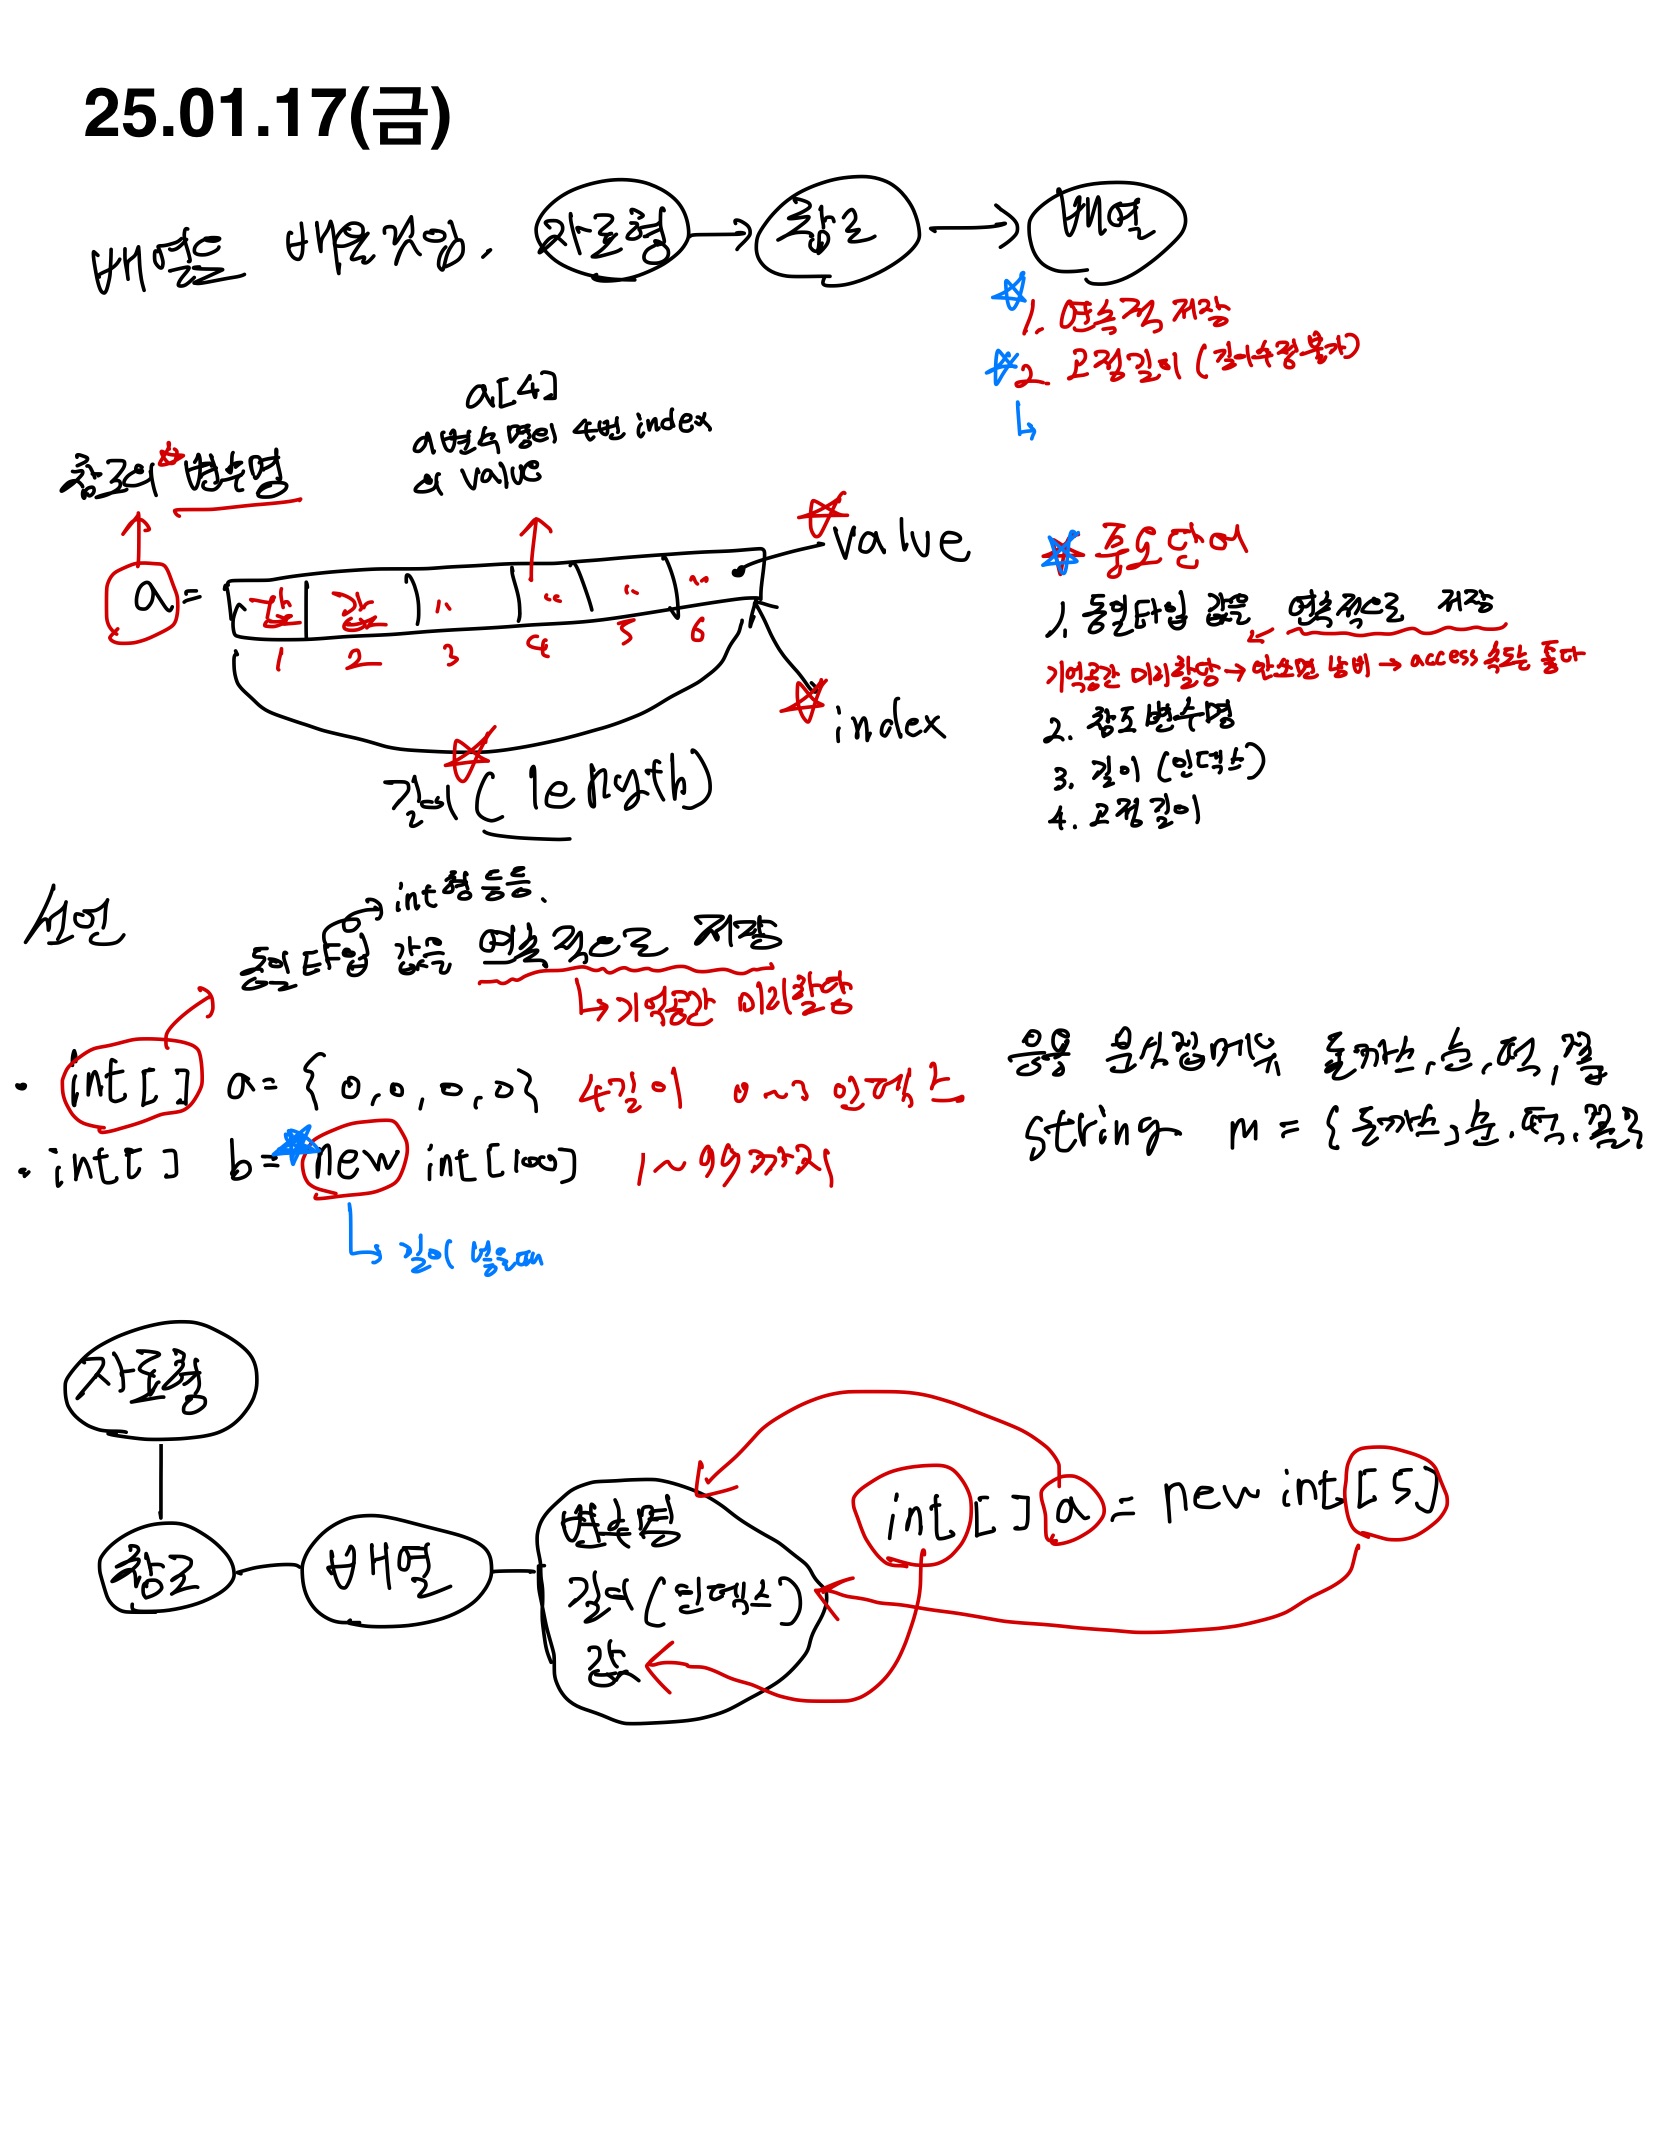 25.01.17(금)
배열을 배울것임. 자료형 → 참조 → 배열
1. 연속적 저장
2. 고정길이 (길이수정불가)
a[4]
a변수명의 4번 index
의 value
참조의 변수명
a =
값 값 〃 〃 〃 〃
1 2 3 4 5 6
value
index
길이 (length)
중요단어
1. 동일타입 값을 연속적으로 저장
기억공간 미리할당 → 안쓰면 낭비 → access 속도는 좋다
2. 참조변수명
3. 길이 (인덱스)
4. 고정길이
선언
int형 등등.
동일타입 값을 연속적으로 저장
기억공간 미리할당
· int[] a = {0,0,0,0} 4길이 0~3 인덱스
· int[] b = new int[100] 1~99까지
길이 넣을때
응용 분식집메뉴 돈까스, 순, 떡, 쫄
string m = {돈까스, 순, 떡, 쫄}
자료형
참조
배열
변수명
길이 (인덱스)
값
int[] a = new int[5]